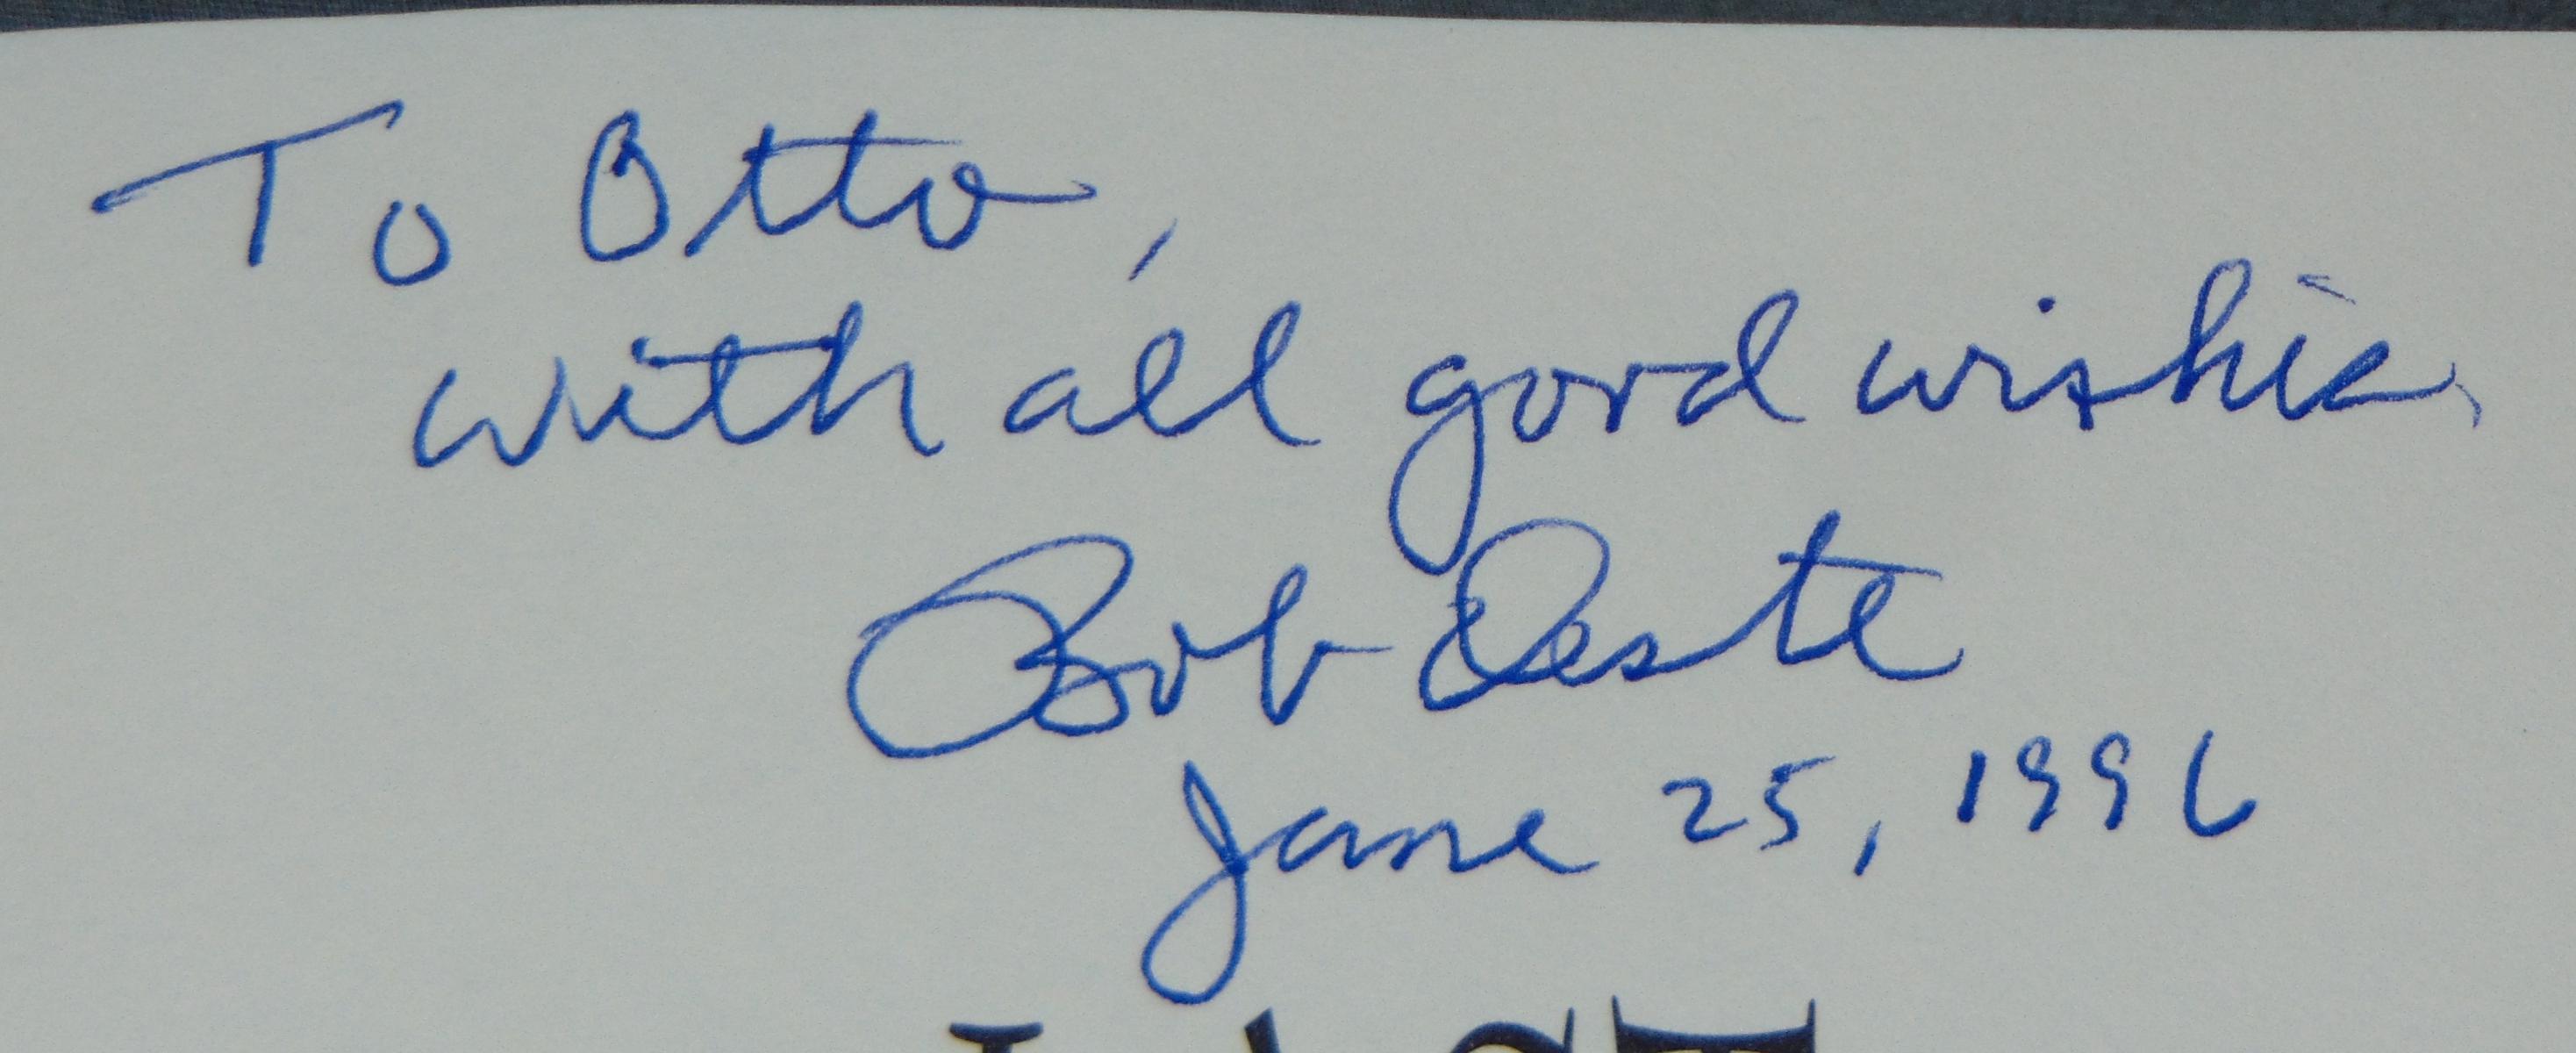 To Otto,
with all good wishes,
Bob
June 25, 1996
LAST